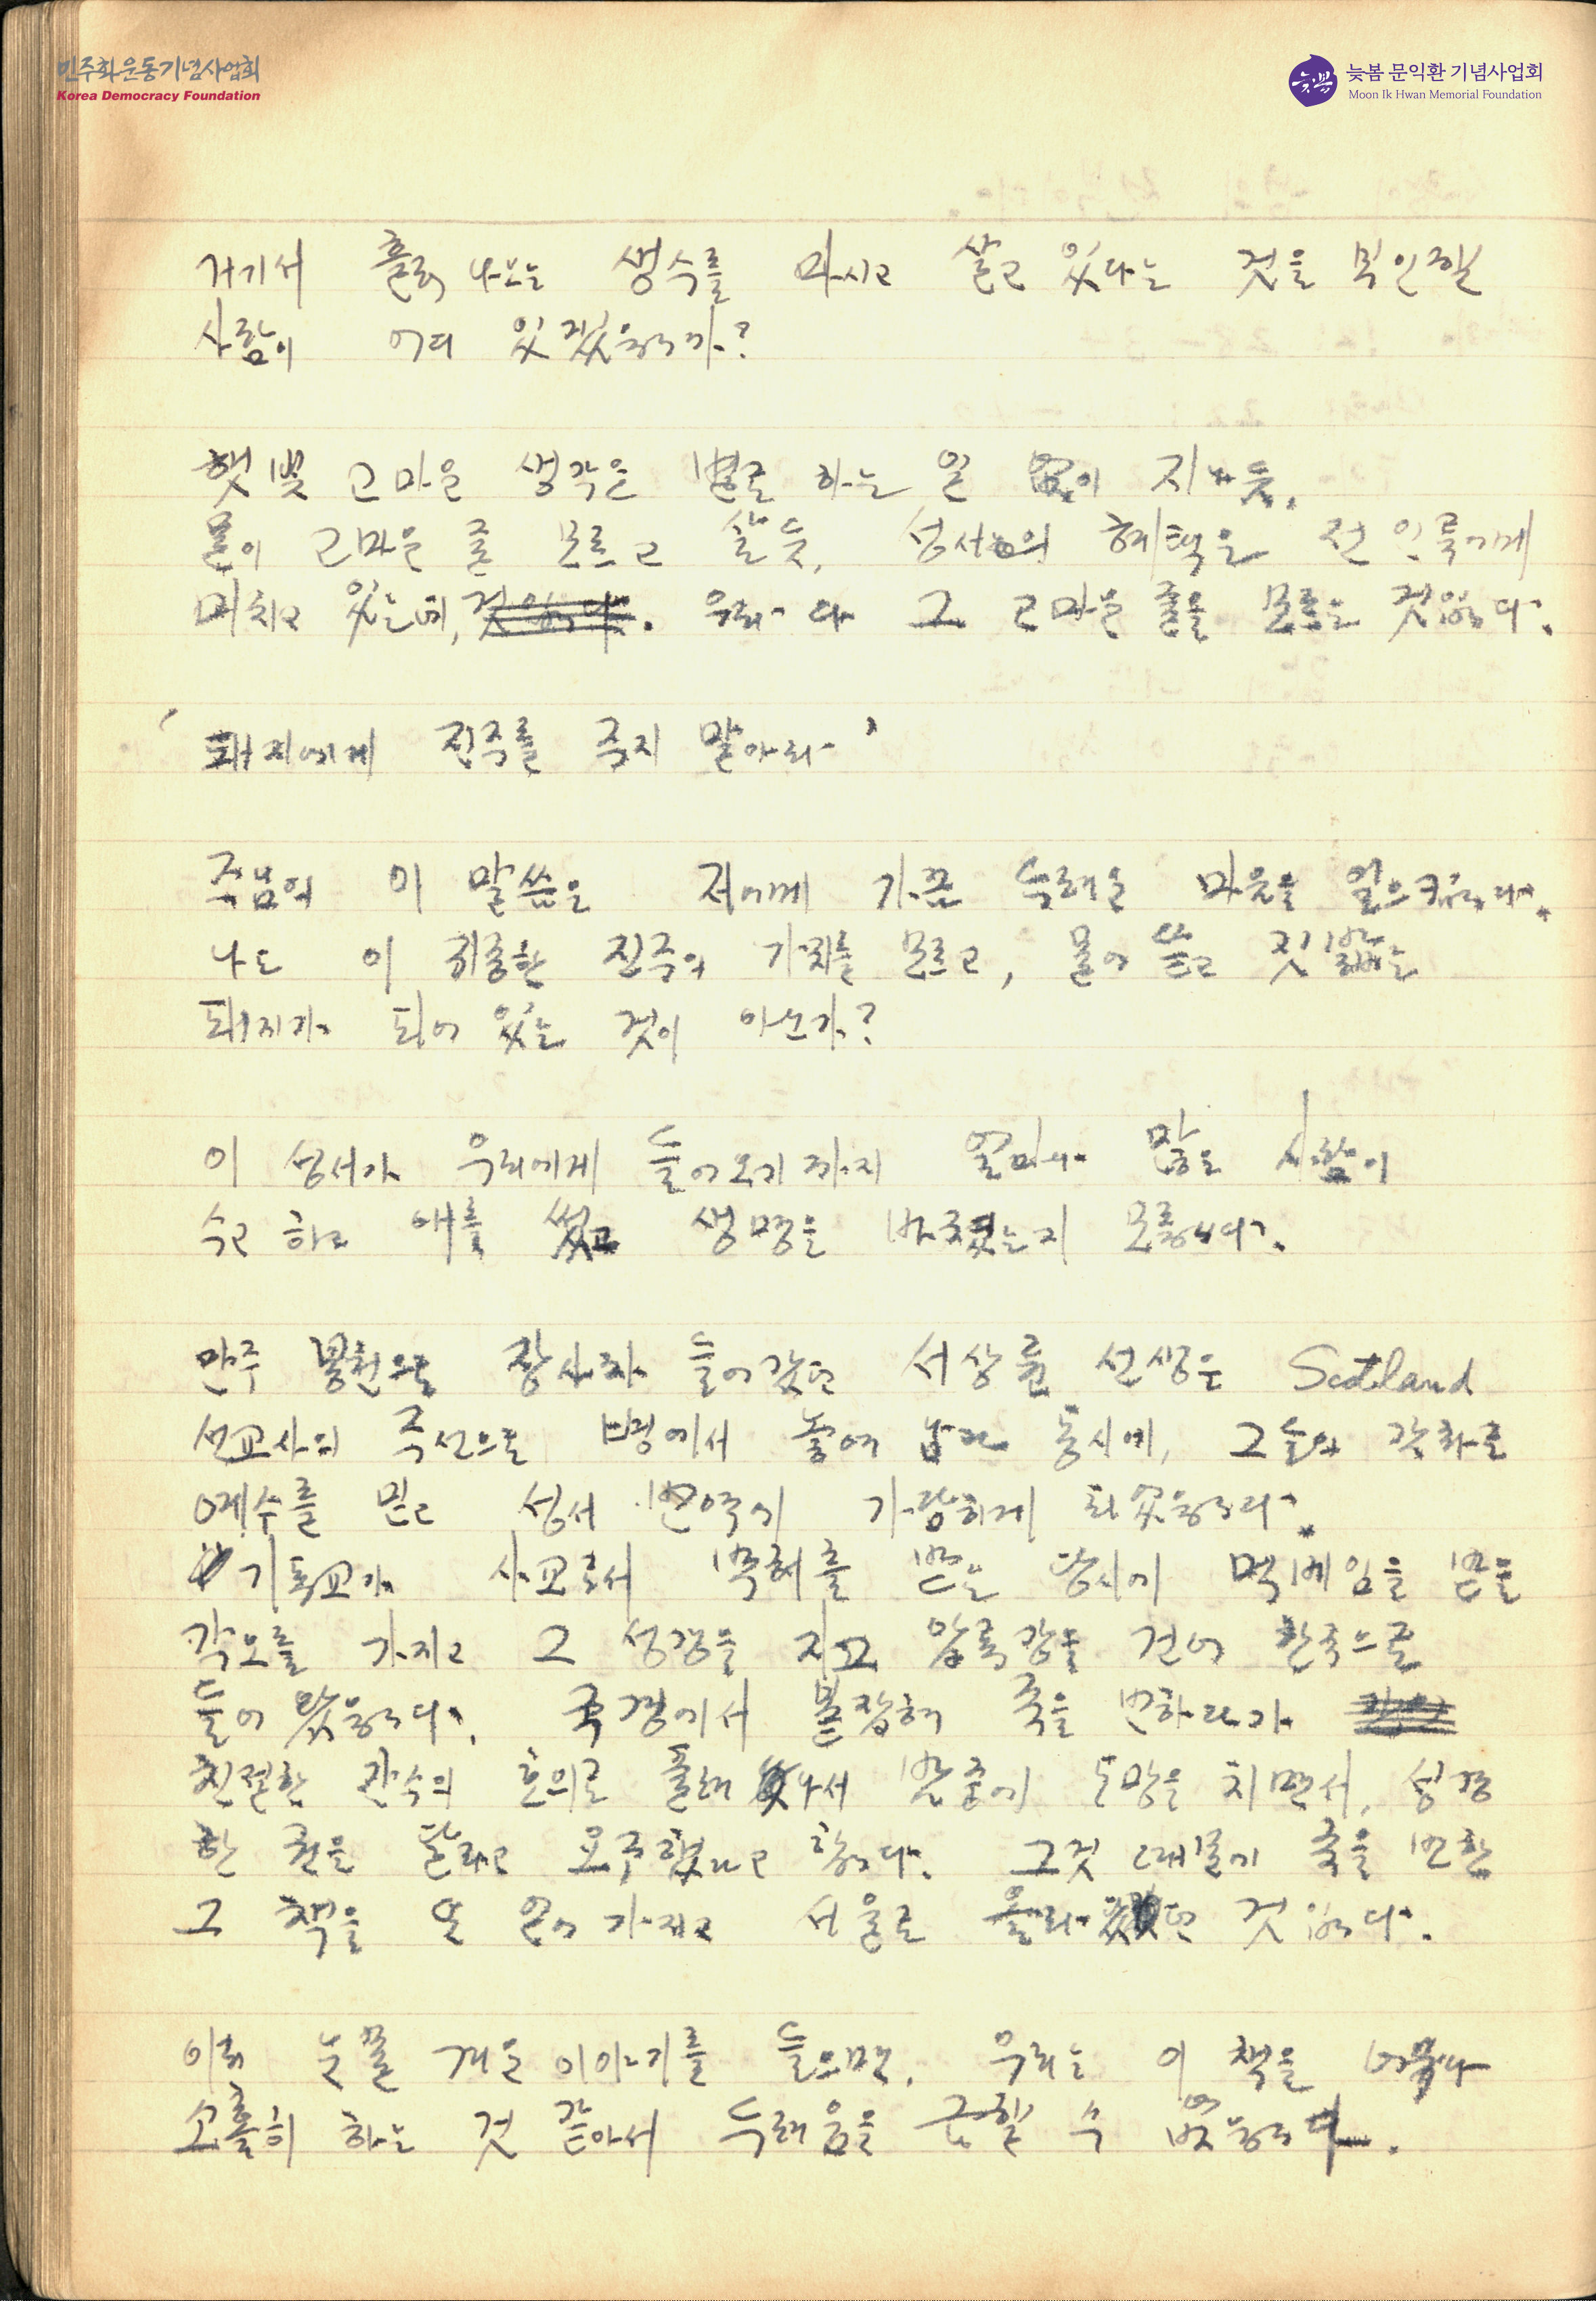 민주화운동기념사업회
Korea Democracy Foundation
늦봄 문익환 기념사업회
Moon Ik Hwan Memorial Foundation
거기서 흘러 나오는 생수를 마시고 살고 있다는 것을 부인할
사람이 어디 있겠읍니까?
햇빛 고마운 생각은 별로 하는 일 없이 지나듯,
물이 고마운 줄 모르고 살듯, 성서의 혜택은 전 인류에게
미치고 있는데, 우리가 다 그 고마운 줄을 모르는 것입니다.
'돼지에게 진주를 주지 말아라'
주님의 이 말씀은 저에게 가끔 두려운 마음을 일으키니다.
나도 이 귀중한 진주의 가치를 모르고, 물어 뜯고 짓밟는
돼지가 되어 있는 것이 아닌가?
이 성서가 우리에게 들어오기까지 얼마나 많은 사람이
수고하고 애를 썼고 생명을 바쳤는지 모릅니다.
만주 봉천으로 장사차 들어갔던 서상륜 선생은 Scotland
선교사의 주선으로 병에서 놓여 남과 동시에, 그들의 감화로
예수를 믿고 성서 번역에 가담하게 되었읍니다.
기독교가 사교로서 박해를 받는 당시에 목베임을 받을
각오를 가지고 그 성경을 지고 압록강을 건너 한국으로
들어 왔읍니다. 국경에서 붙잡혀 죽을 번하다가
친절한 간수의 호의로 풀려 나서 밤중에 도망을 치면서, 성경
한 권을 달라고 요구했다고 합니다. 그것 때문에 죽을 번한
그 책을 또 얻어 가지고 서울로 올라 왔던 것입니다.
이런 눈물 겨운 이야기를 들으면, 우리는 이 책을 너무나
소홀히 하는 것 같아서 두려움을 금할 수 없읍니다.